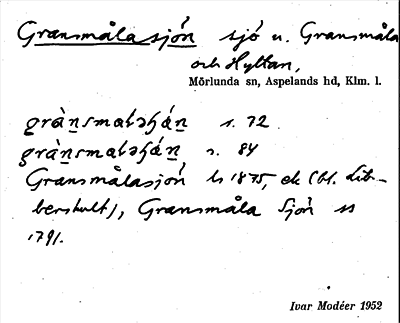 Gransmålasjön sjö u. Gransmåla
och Hyltan,
Mörlunda sn, Aspelands hd, Klm. l.
gràn̠smaləʃɧán̠ s. 72
gràn̠smaləɧán̠ s. 84
Gransmålasjön ls 1875, ek (bl. Lib-
bershult), Gransmåla Sjön ss
1791.
Ivar Modéer 1952